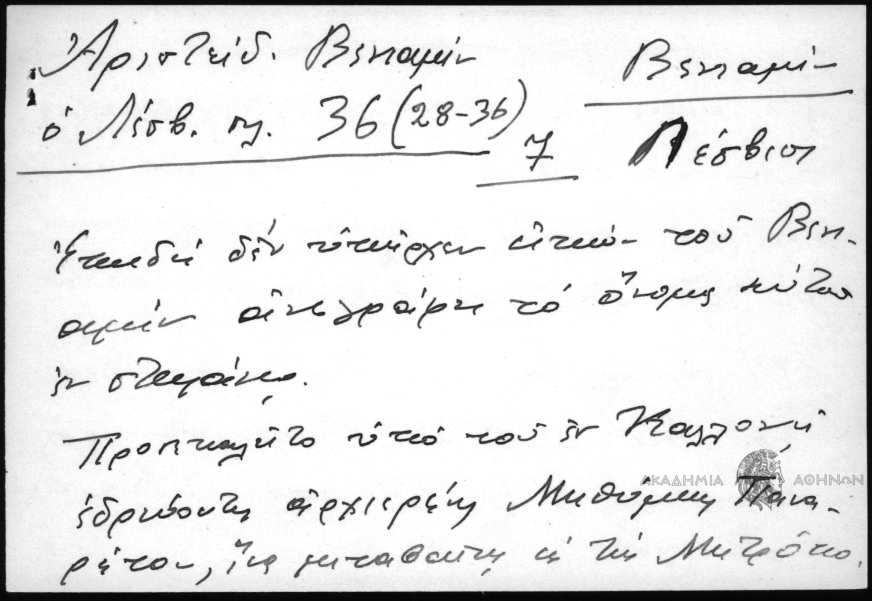 Ἀριστείδ. Βενιαμίν
ὁ Λέσβ. σελ. 36 (28-36)
7
Βενιαμίν
Λέσβιος
Ἐπειδή δέν ὑπῆρχεν εἰκών τοῦ Βεν-
αμίν ἀνεγράφη τό ὄνομα τούτου
ἐν στεφάνῳ.
Προσεκαλεῖτο ὑπό τοῦ ἐν Καλλονῇ
ἑδρεύοντος ἀρχιερέως Μηθύμνης Πανα-
ρέτου, ἵνα μεταβαίνῃ εἰς τήν Μητρόπο.
ΑΚΑΔΗΜΙΑ ΑΘΗΝΩΝ